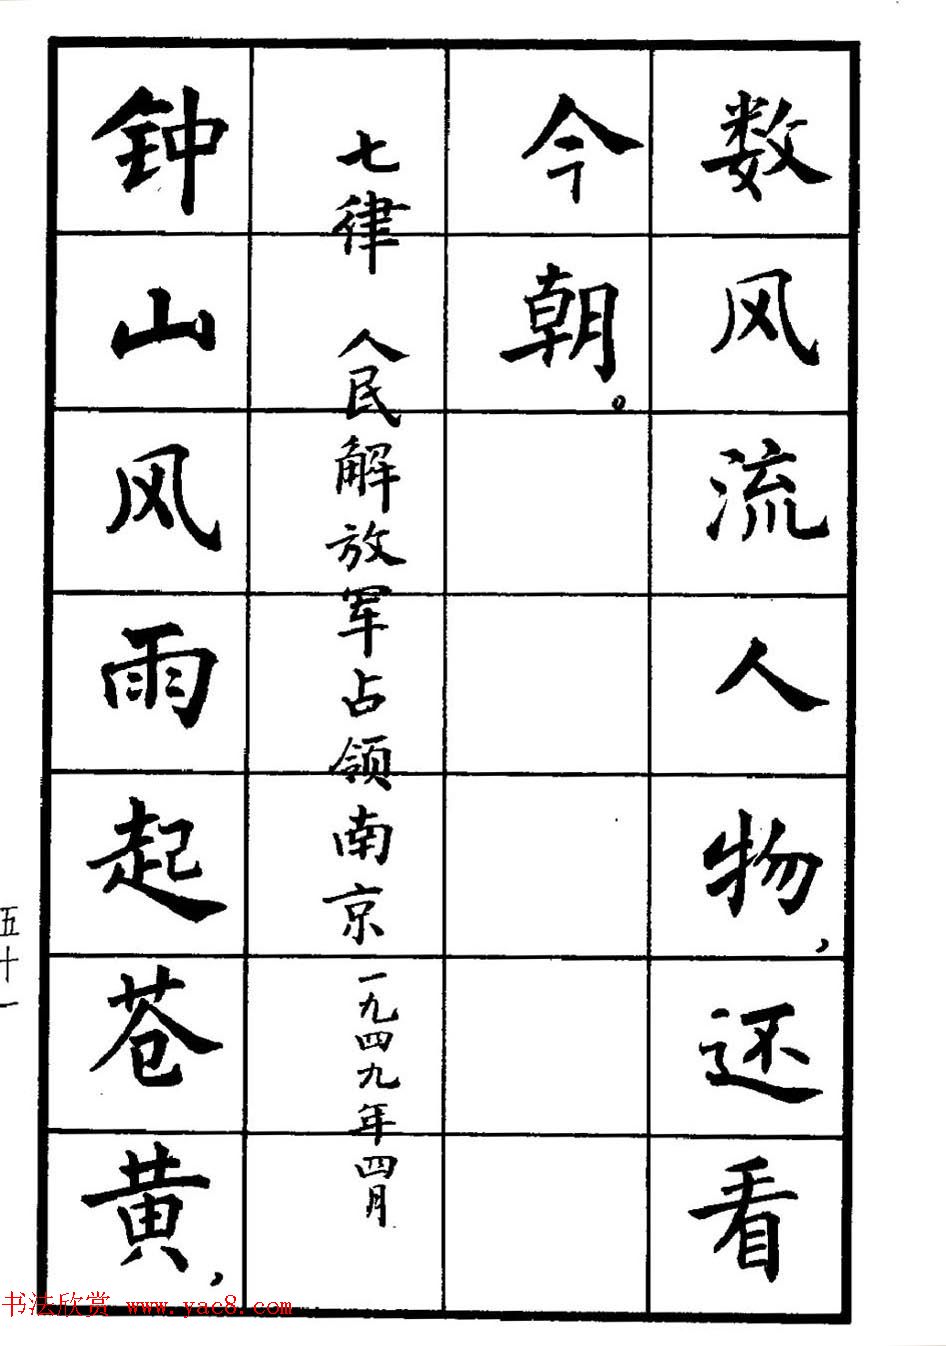 数风流人物，还看
今朝。
七律 人民解放军占领南京 一九四九年四月
钟山风雨起苍黄，
五十一
书法欣赏 www.yac8.com